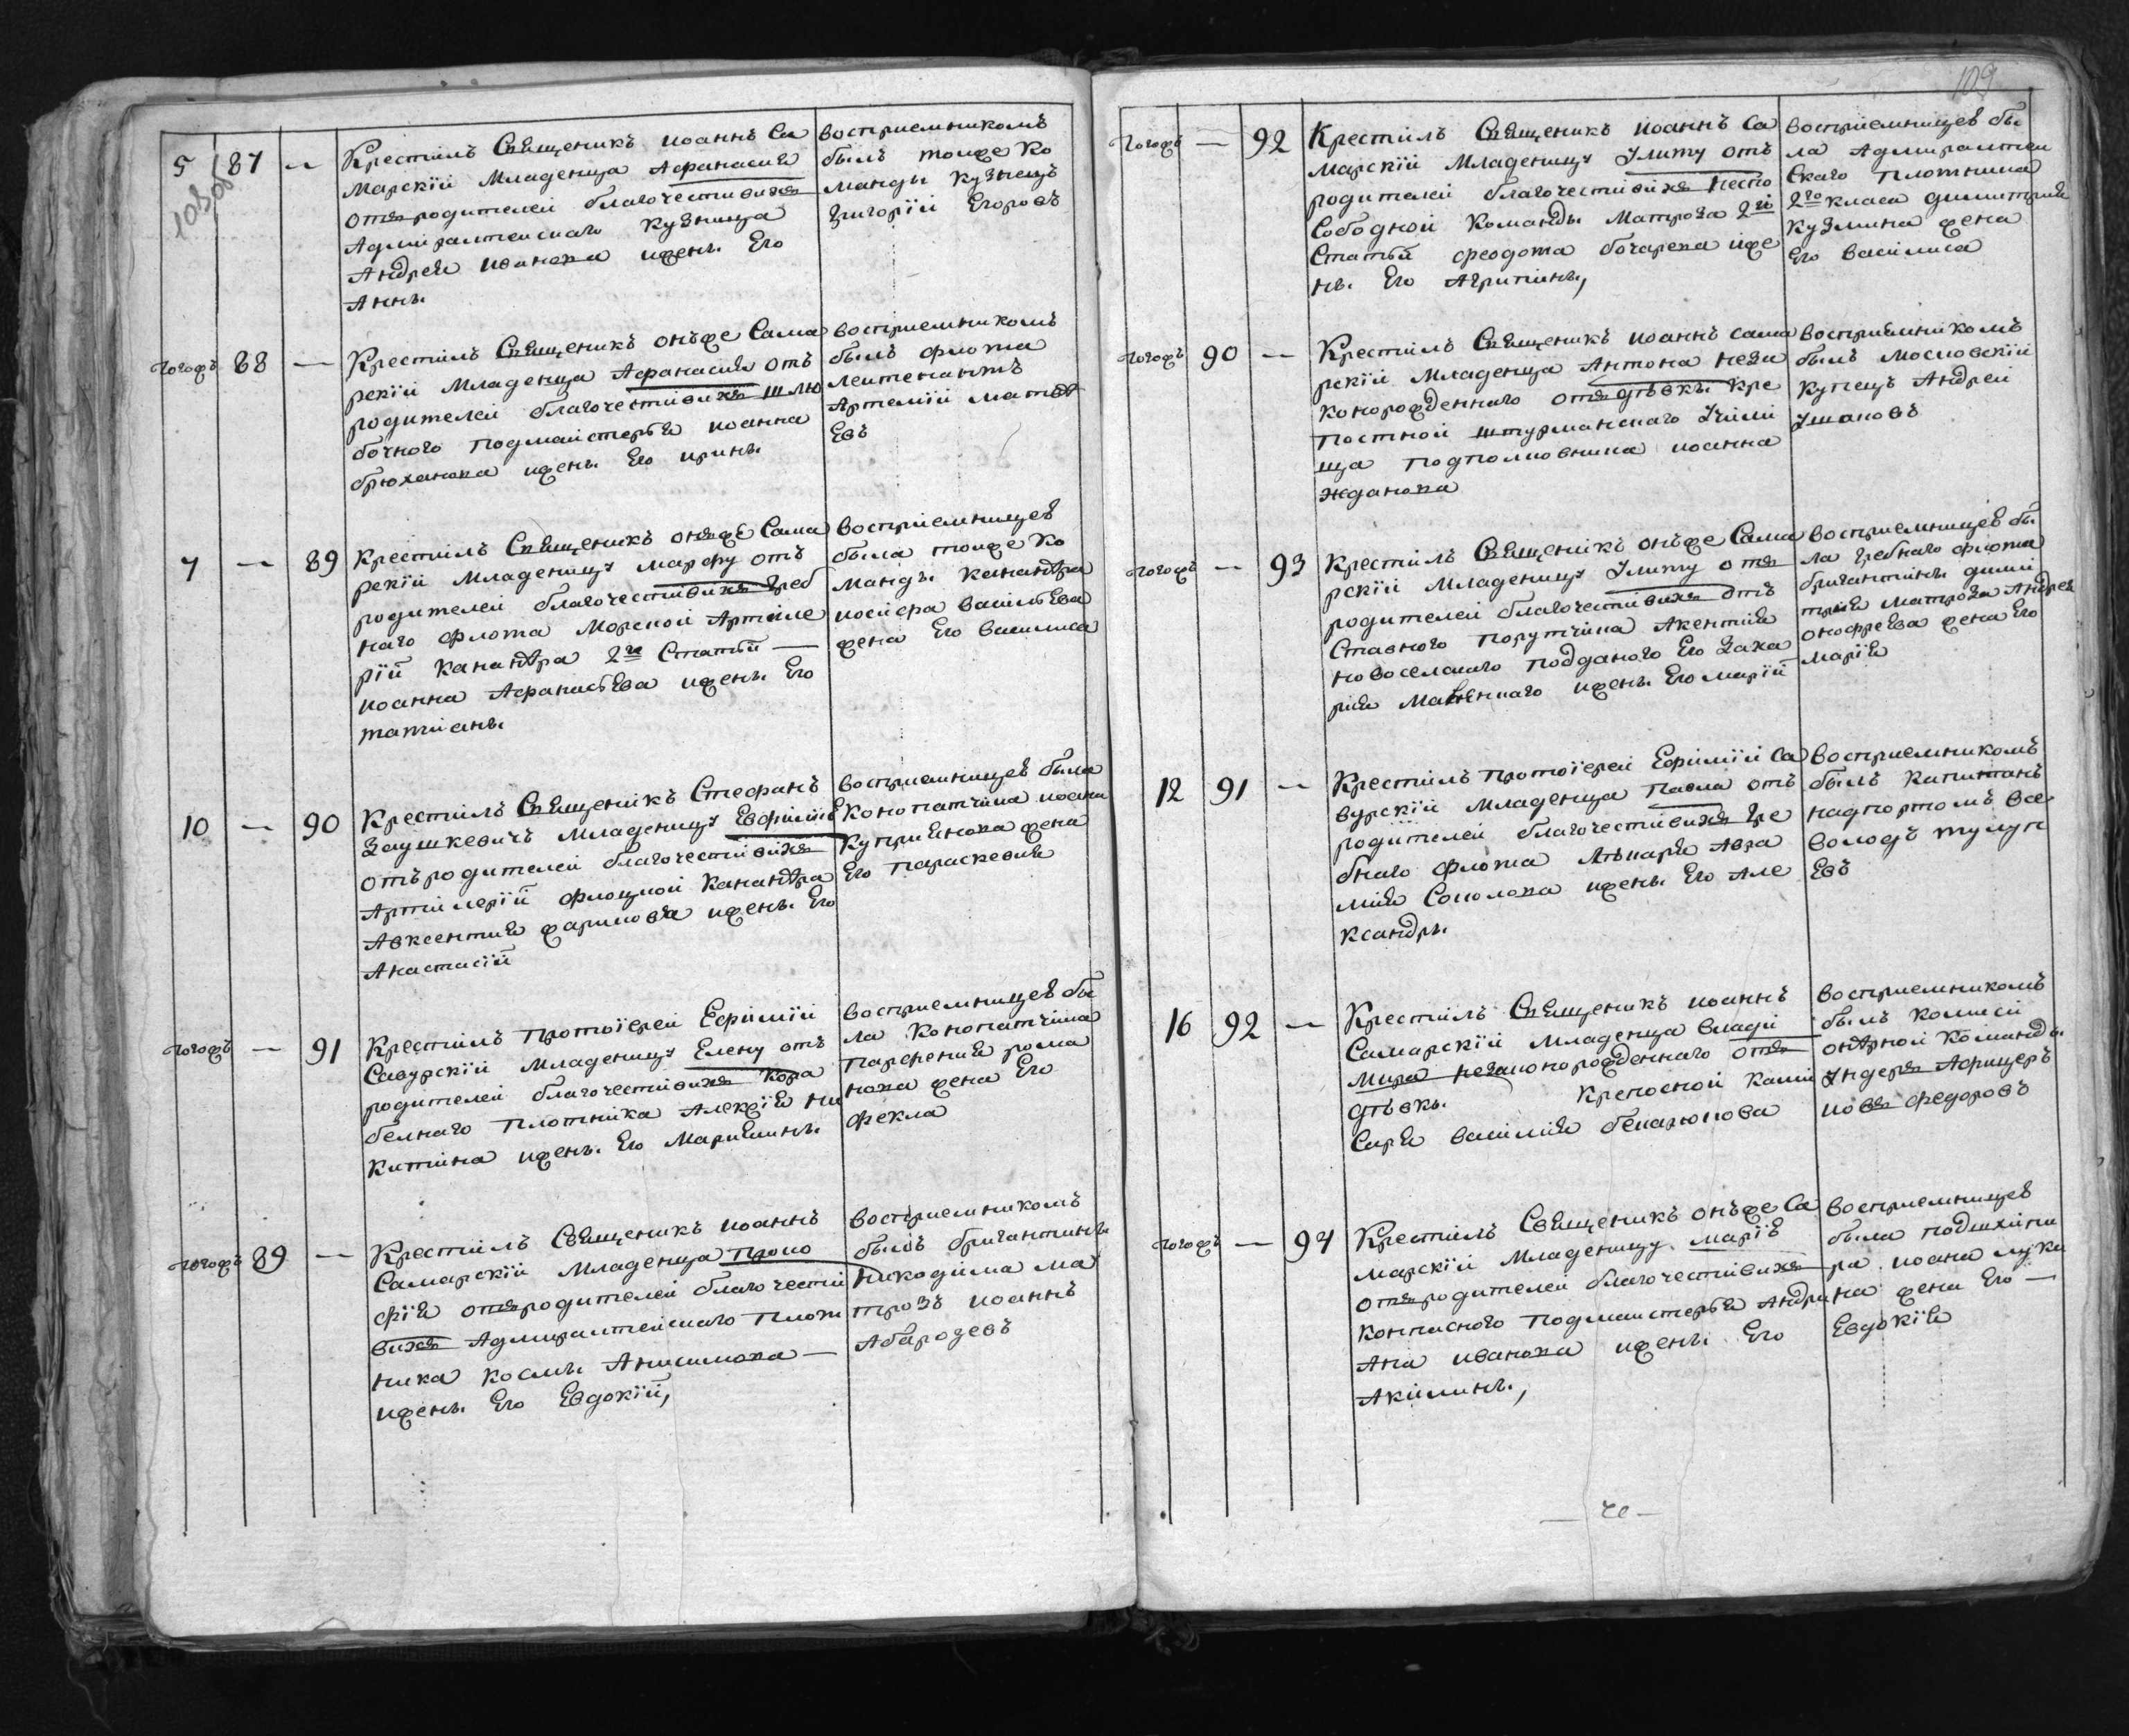 108об
5 87 —
Крестилъ Священикъ иоаннъ Са
марскїй Младенца Афанасия
отъ родителей благочестивихъ
Адмиралтейскаго Кузнеца
Андрея иванова ижены Его
Анны
восприемникомъ
былъ тоиже Ко
манды Кузнецъ
григорїй Егоровъ
Тогожъ 88 —
Крестилъ Священикъ онъже Сама
рскїй Младенца Афанасия отъ
родителей благочестивихъ шлю
бочного подмаистерья иоанна
брюханова ижены Его ирины
восприемникомъ
былъ флота
леитенантъ
Артемїй матве
Евъ
7 — 89
Крестилъ Священикъ онъже Сама
рскїй Младеницу марфу отъ
родителей благочестивихъ греб
наго флота Морской Артиле
рїй Канандра 2й Статьи —
иоанна Афанасьева ижены Его
татианы
восприемницею
была тоиже ко
манды канандра
иосифа васильева
жена Его василиса
10 — 90
Крестилъ Священикъ Стефанъ
Заушкевичъ Младеницу Евфимию
отъ родителей благочестивихъ
Артилерїй флоцкой Канандра
Авксентия жарикова ижены Его
Анастасїй
восприемницею была
Конопатчика иоана
Куприянова жена
Его Параскевия
Тогожъ — 91
Крестилъ протоїерей Ефимїй
Савурскїй Младеницу Елену отъ
родителей благочестивихъ Кора
белнаго плотника Алекѯїя ни
китина ижены Его Мариямны
восприемницею бы
ла Конопатчика
парфения рома
нова жена Его
фекла
Тогожъ 89 —
Крестилъ Священикъ иоаннъ
Самарскїй Младенца проко
фїя отъ родителей благочести
вихъ Адмиралтейскаго плот
ника космы Анисимова —
ижены Его Евдокїй,
восприемникомъ
былъ бригантины
никодима ма
трозъ иоаннъ
Абародевъ
109
Тогожъ — 92
Крестилъ Священикъ иоаннъ Са
марскїй Младеницу Улиту отъ
родителей благочестивихъ несво
Собоdной Команды Матроза 2й
Статьи феодота бочарева ижe
ны Его Агрипины,
восприемницею бы
ла Адмиралтей
Скаго плотника
2го класа димитрия
Кузмина жена
Его василиса
Тогожъ 90 —
Крестилъ Священикъ иоаннъ сама
рскїй Младенца Антона неза
конорожденнаго отъ дѣвки Кре
постной штурманскаго Учили
ща подполковника иоанна
жданова
восприемникомъ
былъ Московскїй
купецъ Андрей
Ушаковъ
Тогожъ — 93
Крестилъ Священикъ онъже Сама
рскїй Младеницу Улиту отъ
родителей благочестивихъ отъ
Ставного порутчика Акентия
новоселскаго подданого Его Заха
рия ижены Его марїй
восприемницею бы
ла гребнаго флота
бригантины дими
трия матроза Андрея
онофреева жена Его
марїя
12 91 —
Крестилъ протоїерей Ефимїй Са
вурскїй Младенца павла отъ
родителей благочестивихъ гре
бнаго флота лѣкаря Авра
мия Соколова ижены Его Але
ксандры
восприемникомъ
былъ Капитанъ
надпортомъ все
володъ тулуп
Евъ
16 92 —
Крестилъ Священикъ иоаннъ
Самарскїй Младенца влади
мира незаконорожденнаго отъ
дѣвки Крепосной коми
Сарй василия бекарюкова
восприемникомъ
былъ комиси
онѣрной Команды
ундеръ Афицеръ
иовъ федоровъ
Тогожъ — 94
Крестилъ Священикъ онъже Са
марскїй Младеницу марїю
отъ родителей благочестивихъ
компасного подмаистерья Андри
Ана иванова ижены Его
Акилины,
восприемницею
была подшкипи
ра иоана луки
на жена Его —
Евдокїя